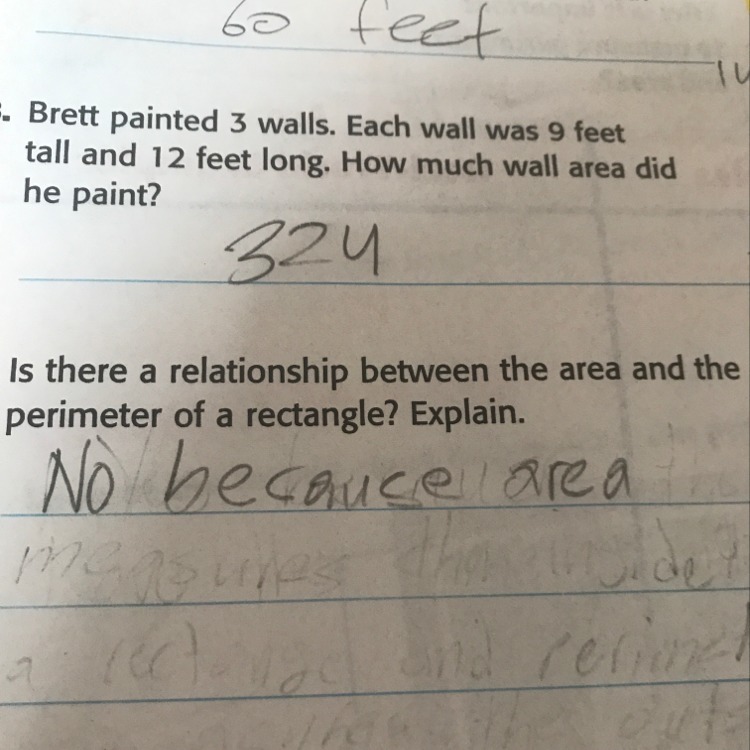 60 feet
. Brett painted 3 walls. Each wall was 9 feet
tall and 12 feet long. How much wall area did
he paint?
324
Is there a relationship between the area and the
perimeter of a rectangle? Explain.
No because area
measures the inside
a rectange and
the out